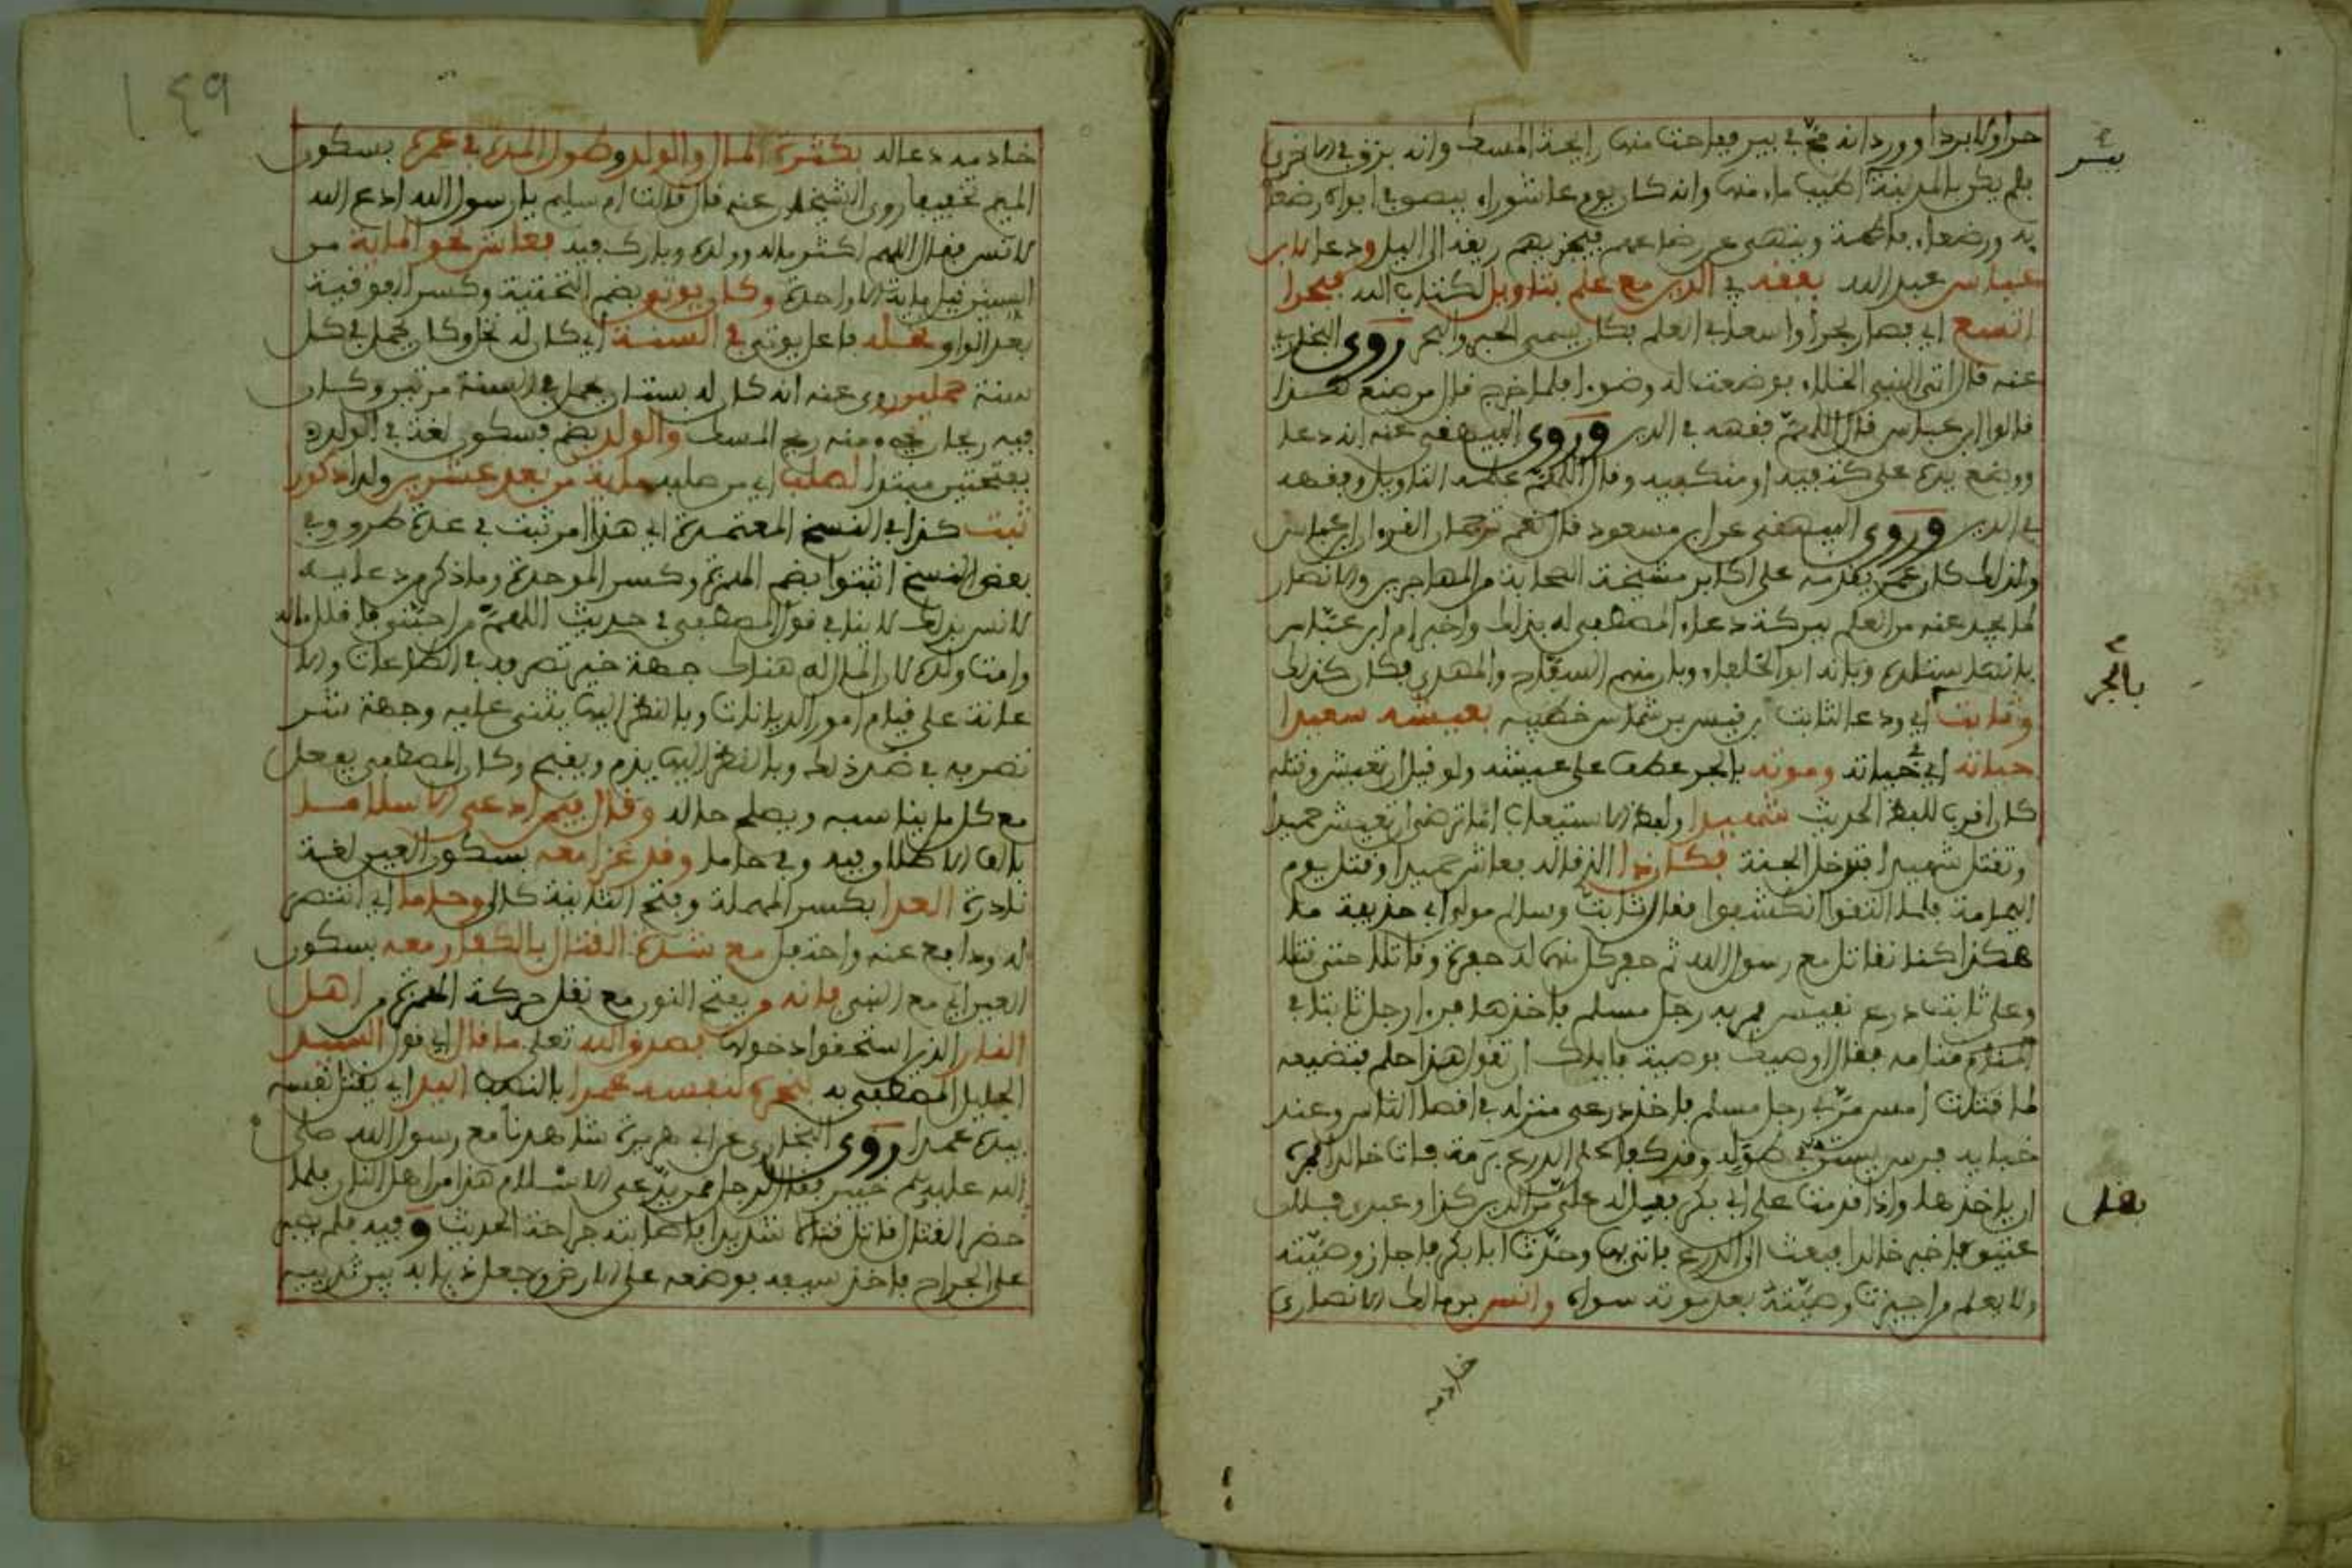 حرا ولا بردا وورد انه مج في بير ففاحت منها رايحة المسك وانه بزق في اخرى
فلم يكن بالمدينة اطيب ماء منها وانه كان يوم عاشوراء يبصق في افواه رضعا
يه ورضعاء فاطمة وينهى عن رضاعهم فيجزيهم ريقه الى اليل ودعا لابن
عباس عبد الله بفقه في الدين مع علم بتاويل لكتاب الله فبحرا
اتسع اي فصار بحرا واسعا في العلم فكان يسمى الحبر والبحر روى البخاري
عنه قال اتى النبي الخلاء فوضعت له وضوءا فلما خرج قال من صنع هذا
قالوا ابن عباس قال اللهم فقهه في الدين وروى البيهقي عنه انه دعا
ووضع يده على كتفيه او منكبيه وقال اللهم علمه التاويل وفقهه
في الدين وروى البيهقي عن ابن مسعود قال نعم ترجمان القرءان ابن عباس
ولذلك كان عمر يقدمه على اكابر مشيخة الصحابة من المهاجرين والانصار
لما يجد عنه من العلم ببركة دعاء المصطفى له بذلك واخبر ام ابن عباس
بانها ستلده وبانه ابو الخلفاء وبان منهم السفاح والمهدي فكان كذلك
وثابت اي ودعا لثابت بن قيس بن شماس خطيبه بعيشه سعيدا
حياته اي في حياته وموته بالجر عطف على عيشه ولو قيل ان تعيش وقتله
كان اقرب للفظ الحديث شهيدا ولفظ الاستيعاب اما ترضى ان تعيش حميدا
وتقتل شهيدا فتدخل الجنة فكان ذا الذي قاله فعاش حميدا وقتل يوم
اليمامة فلما التقوا انكشفوا فقال ثابت وسالم مولى ابي حذيفة ما
هكذا كنا نقاتل مع رسول الله ثم حفر كل منهما له حفرة وقاتلا حتى قتلا
وعلى ثابت درع نفيس فمر به رجل مسلم فاخذها فرءا رجل ثابتا في
منامه فقال اوصيك بوصية فاياك ان تقول هذا حلم فتضيعه
لما قتلت امس مر بي رجل مسلم فاخذ درعي ومنزله في اقصا الناس وعند
خبايه فرس يستن في طوله وقد كفا على الدرع برمة فات خالدا فمره
ان ياخذها واذا قدمت على ابي بكر فقل له علي من الدين كذا وعبدي فلان
عتيق فاخبر خالدا فبعث الى الدرع فاتي بها وحدث ابا بكر فاجاز وصيته
ولا يعلم من اجيزت وصيته بعد موته سواه وانس بن مالك الانصاري
بير
بالجر
فقل
خادمه
١٤٩
خادمه دعا له بكثرة المال والولد وطول المدة في عمره بسكون
الميم تخفيفا روى الشيخان عنه قال قالت ام سليم يا رسول الله ادع الله
لانس فقال اللهم اكثر ماله وولده وبارك فيه فعاش نحو الماية من
السنين قيل ماية الا واحدة وكان يوتي بضم التحتية وكسر الفوقية
بعد الواو نخله فاعل يوتي في السنة اي كان له نخل وكان يحمل في كل
سنة حملين روي عنه انه كان له بستان يحمل في السنة مرتين وكان
فيه ريحان يجيء منه ريح المسك والولد بضم فسكون لغة في الولد
بفتحتين مبتدا لصلب اي من صلبه ماية من بعد عشرين ولدا ذكور
ثبت كذا في النسخ المعتمدة اي هذا امر ثبت في عدة طرق وفي
بعض النسخ اثبتوا بضم الهمزة وكسر الموحدة وما ذكر من دعايه
لانس بذلك لا ينافي قول المصطفى في حديث اللهم من احبني فاقلل ماله
وامت ولده لان المال له هناك جهة خير تصرفه في الطاعات والا
عانة على قيام امور الديانات وبالنظر اليها يثنى عليه وجهة شر
تصرفه في ضد ذلك وبالنظر اليها يذم ويقبح وكان المصطفى يفعل
مع كل ما يناسبه ويصلح حاله وقال فيمن ادعى الاسلاما
بالف الاطلاق فيه وفي حاما وقد غزا معه بسكون العين لغة
نادرة العدا بكسر المهملة وفتح الثانية كالى وحاما اي انتصر
له ودافع عنه واحتفل مع شدة القتال بالكفار معه بسكون
العين اي مع النبي بانه وبفتح النون مع نقل حركة الهمزة من اهل
النار الذين استحقوا دخولها فصدق الله تعالى ما قال اي قول السيد
الجليل المصطفى به بنحره لنفسه عمدا بالنصب اليد اي بقتل نفسه
بيده عمدا روى البخاري عن ابي هريرة شاهدنا مع رسول الله صلى
الله عليه وسلم خيبر فقال لرجل ممن يدعى الاسلام هذا من اهل النار فلما
حضر القتال قاتل قتالا شديدا فاصابته جراحة الحديث وفيه فلم يصبر
على الجراح فاخذ سيفه فوضعه على الارض وجعل ذبابه بين ثدييه